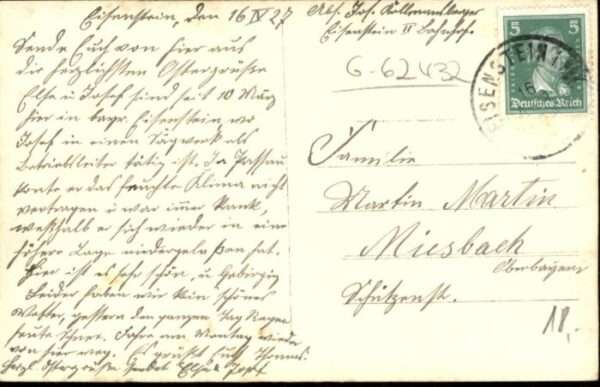 Eisenstein, den 16 IV 27
Sende Euch von hier aus
die herzlichsten Ostergrüße
Else u Josef sind seit 10 März
hier in bayr. Eisenstein wo
Josef in einem Sägwerk als
Betriebsleiter tätig ist. In Passau
konte er das feuchte Klima nicht
vertragen u war immer krank,
weshalb er sich wieder in eine
höhere Lage niedergelaßen hat.
Hier ist es sehr schön, u. Gebirgig
Leider haben wir kein schönes
Wetter, gestern den ganzen Tag Regen
heute Schnee. Fahre am Montag wieder
von hier weg. Es grüßt Euch
Herzl. Ostergrüße Else Josef
Abs. Jos.
Eisenstein II Bahnhof
G-62432
5 5
Deutsches Reich
EISENSTEIN
Familie
Martin Martin
Miesbach
Oberbayern
Schützenst.
18,